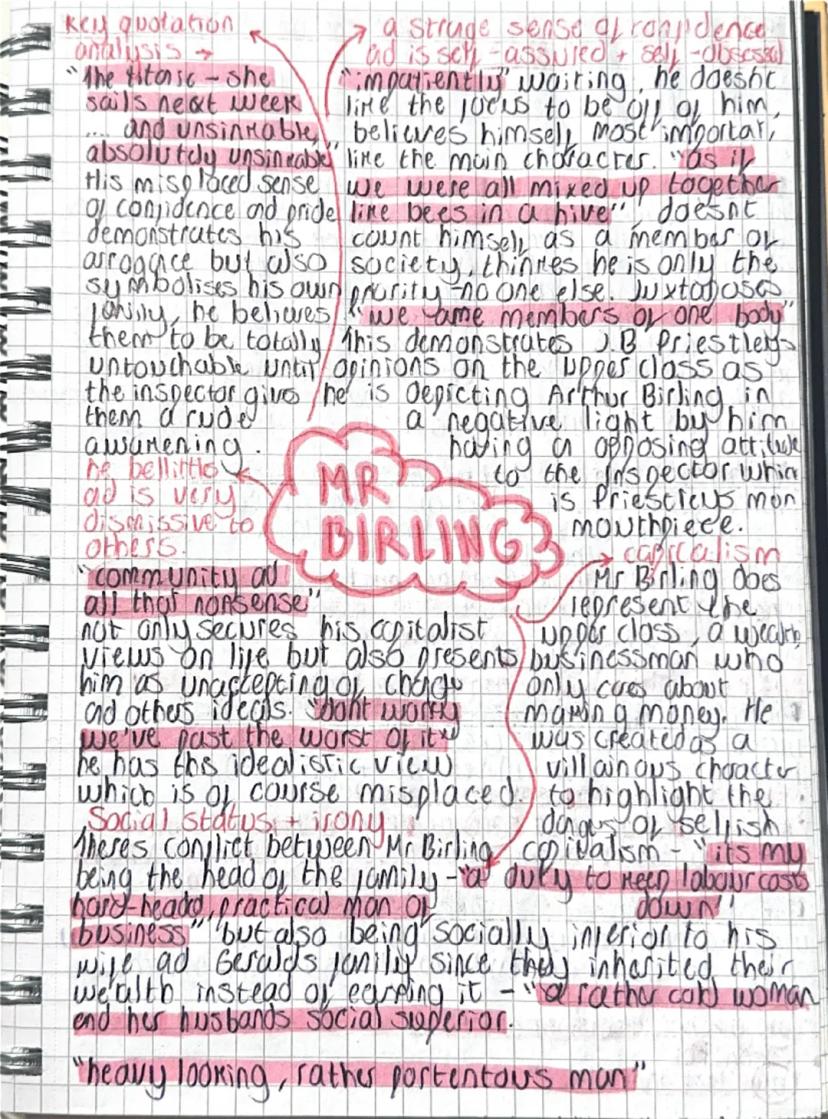 Key quotation
analysis →
"The titanic - she
sails next week
.... and unsinkable,
absolutely unsinkable"
His misplaced sense
of confidence and pride
demonstrates his
arrogance but also
symbolises his own
family, he believes
them to be totally
untouchable until
the inspector gives
them a rude
awakening.
a strage sense of confidence
ad is self-assured + self-obsessed
"impatiently" waiting, he doesnt
like the focus to be off of him,
believes himself most importat,
like the main character. "as if
we were all mixed up together
like bees in a hive", doesnt
count himself as a member of
society, thinks he is only the
priority - no one else. Juxtaposes
"we are members of one body"
This demonstrates J.B Priestleys
opinions on the upper class as
he is depicting Arthur Birling in
a negative light by him
having an opposing attitude
to the Inspector which
is Priestleys mon
mouthpiece.
MR
BIRLING
he bellittles
ad is very
dismissive to
others.
"community ad
all that nonsense"
not only secures his capitalist
views on life but also presents
him as unaccepting of chage
ad others ideals. "dont worry
we've past the worst of it"
he has ths idealistic view
which is of course misplaced.
capitalism
Mr Birling does
represent the
upper class, a wealthy
businessman who
only cares about
making money. He
was created as a
villainous character
to highlight the
dagers of selfish
capitalism - "its my
duty to keep labour costs
down"
Social status + irony
Theres conflict between Mr Birling
being the head of the family - "a
hard-headed, practical man of
business" but also being socially inferior to his
wife ad Geralds family since they inherited their
wealth instead of earning it - "a rather cold woman
and her husbands social superior.
"heavy looking, rather portentous man"